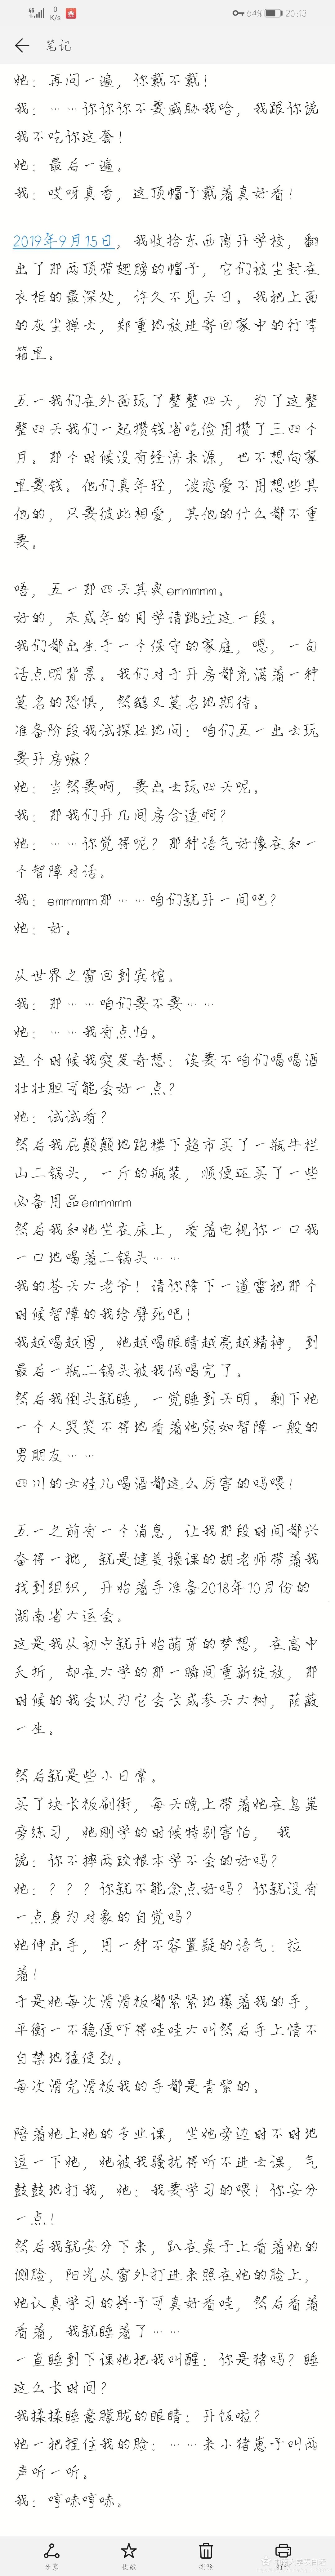 46
0
K/s
64%
20:13
笔记
她：再问一遍，你戴不戴！
我：……你你你不要威胁我哈，我跟你说
我不吃你这套！
她：最后一遍。
我：哎呀真香，这顶帽子戴着真好看！
2019年9月15日，我收拾东西离开学校，翻
出了那两顶带翅膀的帽子，它们被尘封在
衣柜的最深处，许久不见天日。我把上面
的灰尘掸去，郑重地放进寄回家中的行李
箱里。
五一我们在外面玩了整整四天，为了这整
整四天我们一起攒钱省吃俭用攒了三四个
月。那个时候没有经济来源，也不想向家
里要钱。他们真年轻，谈恋爱不用想些其
他的，只要彼此相爱，其他的什么都不重
要。
唔，五一那四天其实emmmmm。
好的，未成年的同学请跳过这一段。
我们都出生于一个保守的家庭，嗯，一句
话点明背景。我们对于开房都充满着一种
莫名的恐惧，然鹅又莫名地期待。
准备阶段我试探性地问：咱们五一出去玩
要开房嘛？
她：当然要啊，要出去玩四天呢。
我：那我们开几间房合适啊？
她：……你觉得呢？那种语气好像在和一
个智障对话。
我：emmmmm那……咱们就开一间吧？
她：好。
从世界之窗回到宾馆。
我：那……咱们要不要……
她：……我有点怕。
这个时候我突发奇想：诶要不咱们喝喝酒
壮壮胆可能会好一点？
她：试试看？
然后我屁颠颠地跑楼下超市买了一瓶牛栏
山二锅头，一斤的瓶装，顺便还买了一些
必备用品emmmmm
然后我和她坐在床上，看着电视你一口我
一口地喝着二锅头……
我的苍天大老爷！请你降下一道雷把那个
时候智障的我给劈死吧！
我越喝越困，她越喝眼睛越亮越精神，到
最后一瓶二锅头被我俩喝完了。
然后我倒头就睡，一觉睡到天明。剩下她
一个人哭笑不得地看着她宛如智障一般的
男朋友……
四川的女娃儿喝酒都这么厉害的吗喂！
五一之前有一个消息，让我那段时间都兴
奋得一批，就是健美操课的胡老师带着我
找到组织，开始着手准备2018年10月份的
湖南省大运会。
这是我从初中就开始萌芽的梦想，在高中
夭折，却在大学的那一瞬间重新绽放，那
时候的我会以为它会长成参天大树，荫蔽
一生。
然后就是些小日常。
买了块长板刷街，每天晚上带着她在鸟巢
旁练习，她刚学的时候特别害怕， 我
说：你不摔两跤根本学不会的好吗？
她：？？？你就不能念点好吗？你就没有
一点身为对象的自觉吗？
她伸出手，用一种不容置疑的语气：拉
着！
于是她每次滑滑板都紧紧地攥着我的手，
平衡一不稳便吓得哇哇大叫然后手上情不
自禁地猛使劲。
每次滑完滑板我的手都是青紫的。
陪着她上她的专业课，坐她旁边时不时地
逗一下她，她被我骚扰得听不进去课，气
鼓鼓地打我，她：我要学习的喂！你安分
一点！
然后我就安分下来，趴在桌子上看着她的
侧脸，阳光从窗外打进来照在她的脸上，
她认真学习的样子可真好看哇，然后看着
看着，我就睡着了……
一直睡到下课她把我叫醒：你是猪吗？睡
这么长时间？
我揉揉睡意朦胧的眼睛：开饭啦？
她一把捏住我的脸：……来小猪崽子叫两
声听一听。
我：哼哧哼哧。
分享
收藏
删除
打印